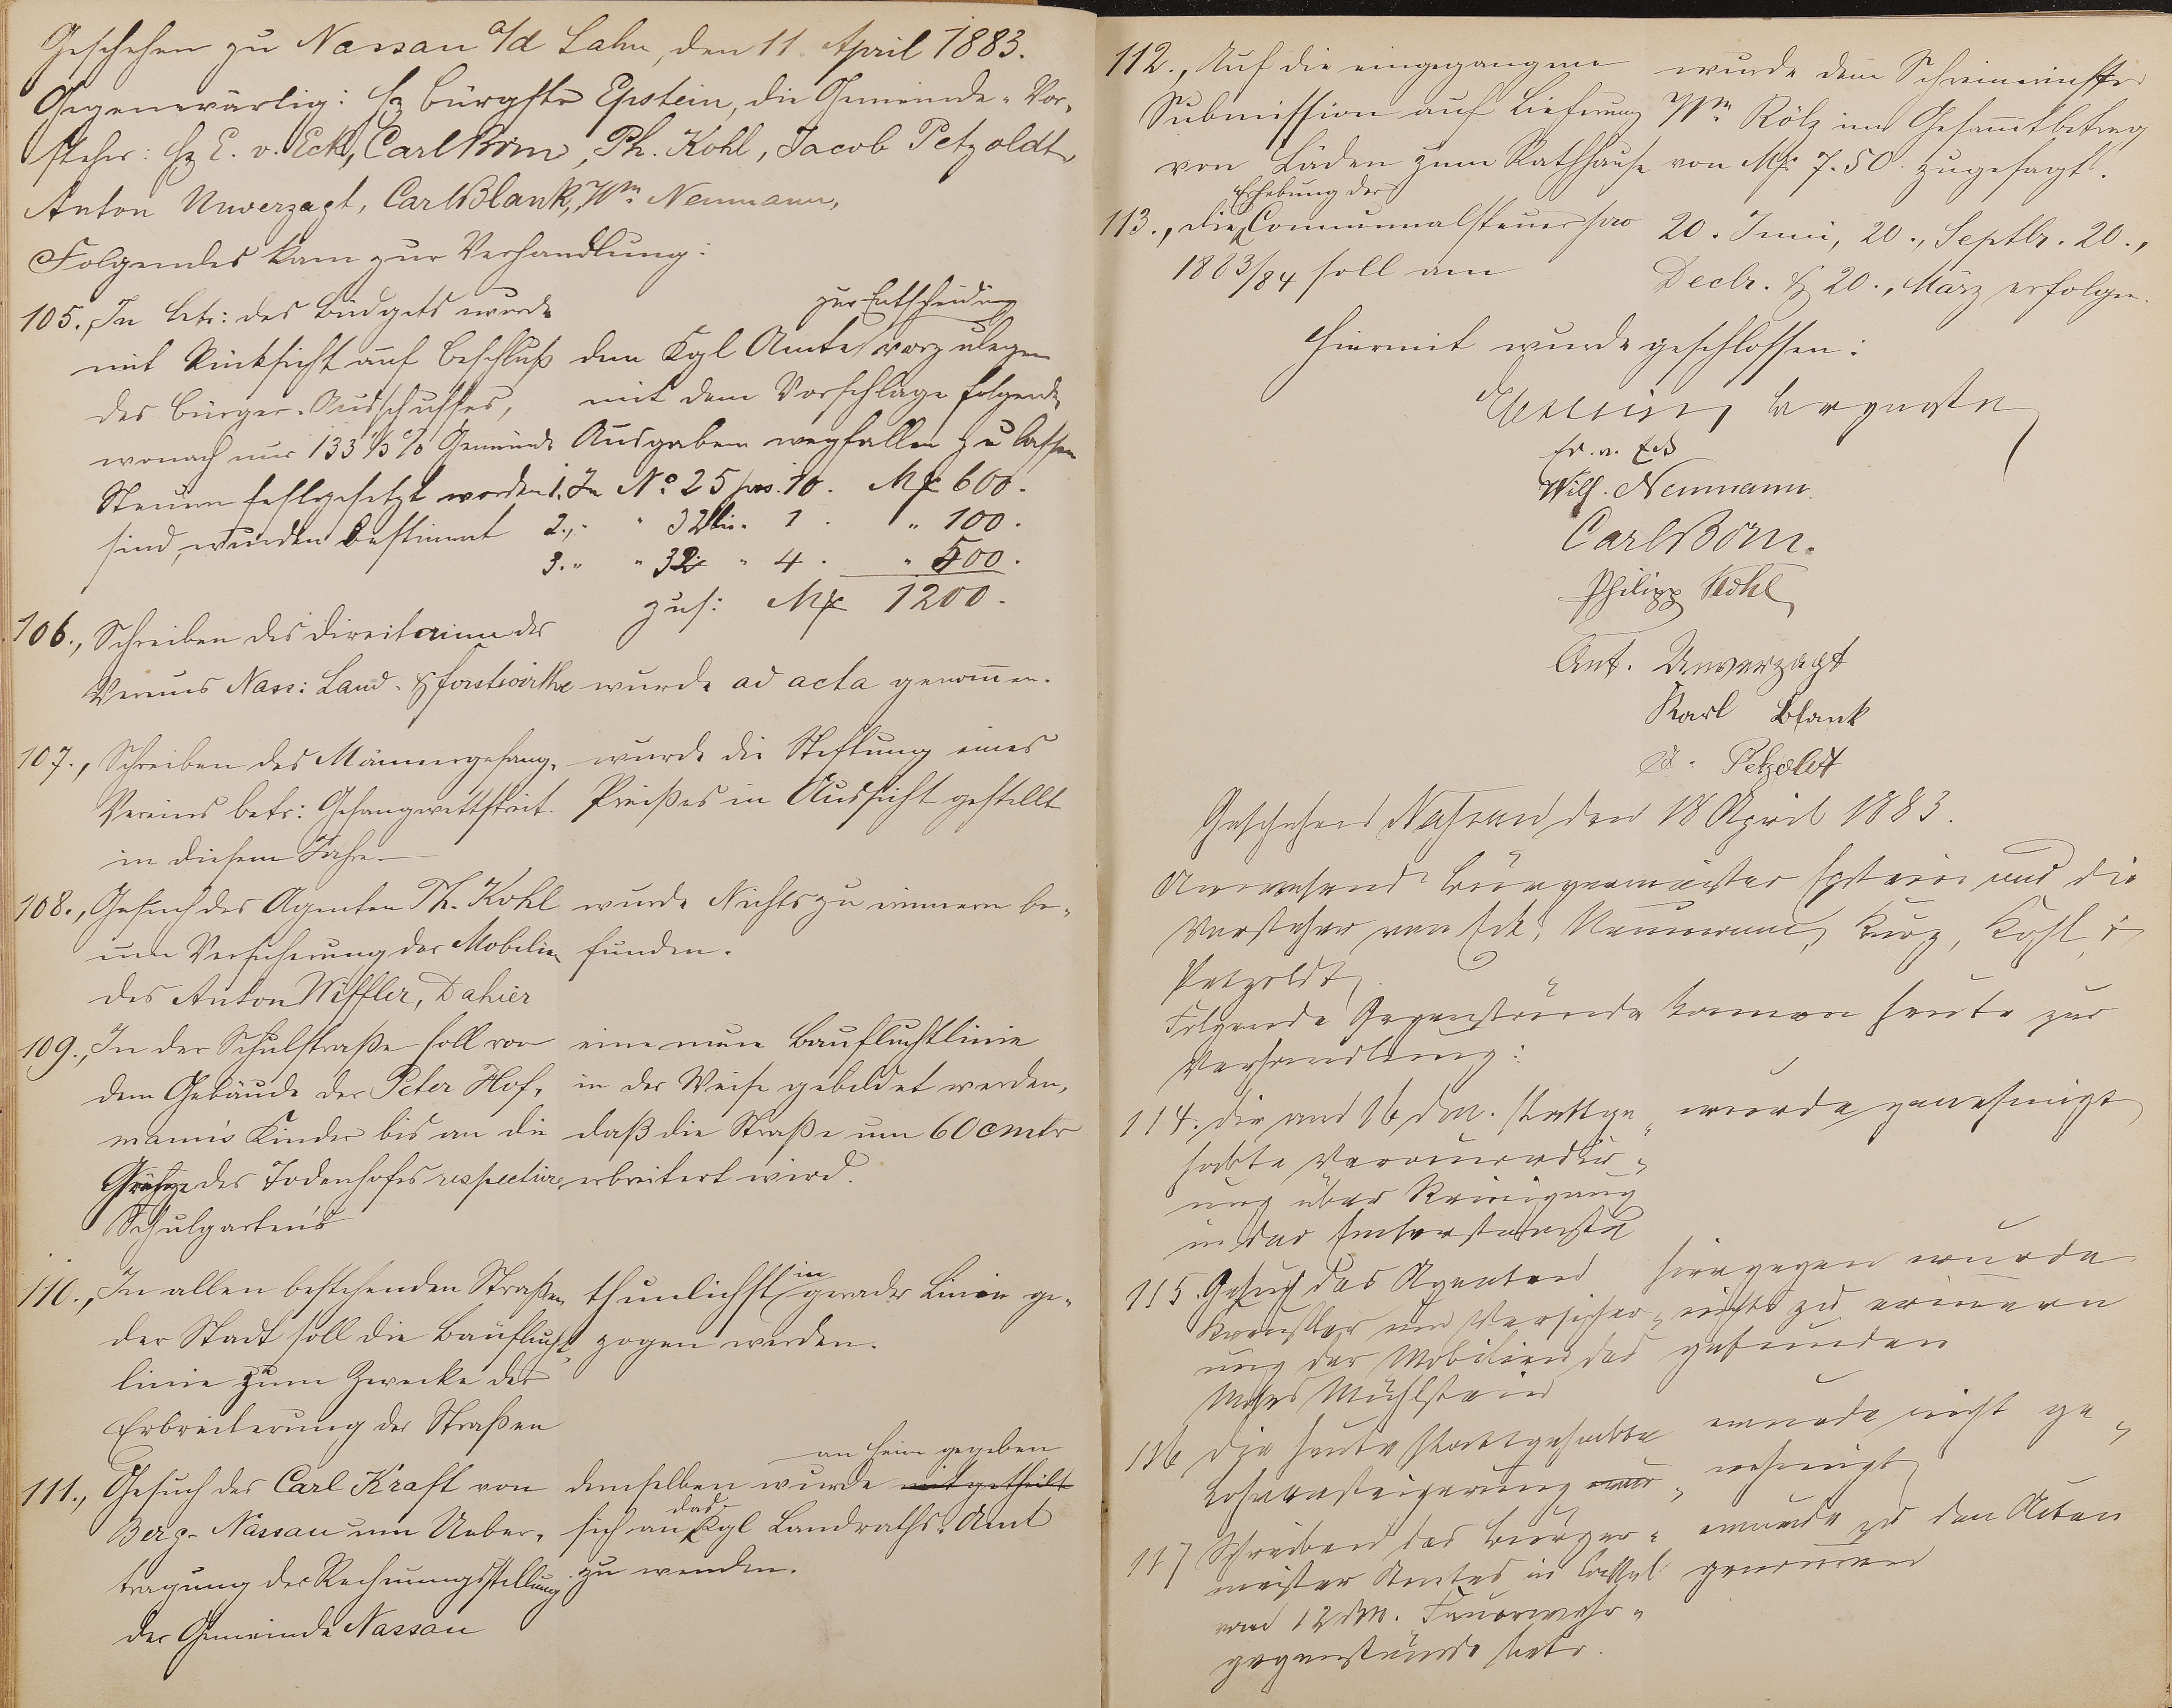 Geschehen zu Nassau a/d Lahn, den 11. April 1883.
Gegenwärtig: H. Bürgstr Epstein, die Gemeinde-Vor-
steher: H. E. v. Eck, Carl Born, Ph. Kohl, Jacob Petzoldt,
Anton Unverzagt, Carl Blank, Wm. Neumann,
Folgendes kam zur Verhandlung:
105., In betr: des Budgets wurde
mit Rücksicht auf Beschluß
des Bürger-Ausschusses,
wonach nur 133 1/3 % Gemeinde
Steuern festgesetzt worden
sind, wurden bestimmt
zur Entscheidung
dem Kgl Amte vorzulegen
mit dem Vorschlage folgende
Ausgaben wegfallen zu lassen
1. In No 25 pos. 10. Mk 600.
2., " " 32 " 1 . " 100.
3. " " 32 " 4 . " 500.
zus: Mk 1200.
106., Schreiben des Direktoriums des
Vereins Nass: Land- & Forstwirthe
wurde ad acta genommen.
107., Schreiben des Männergesang-
Vereins betr: Gesangwettstreit
in diesem Jahre.
wurde die Stiftung eines
Preißes in Aussicht gestellt
108., Gesuch des Agenten Ph. Kohl
um Versicherung der Mobilien
des Anton Wiffler, Dahier
wurde Nichts zu erinnern be-
funden.
109., In der Schulstraße soll von
dem Gebäude der Peter Hof-
mann's Kinder bis an die
Grenze des Todenhofes respective
Schulgarten's
eine neue Baufluchtlinie
in der Weise gebildet werden,
daß die Straße um 60 cmtr
erbreitert wird.
110., In allen bestehenden Straßen
der Stadt soll die Baufluchts-
linie zum Zwecke der
Erbreiterung der Straßen
thunlichst in gerader Linie ge-
zogen werden.
111., Gesuch des Carl Kraft von
Berg-Nassau um Ueber-
tragung der Rechnungsstellung
der Gemeinde Nassau
an heim gegeben
demselben wurde mitgetheilt
sich an das Kgl Landraths-Amt
zu wenden.
112., Auf die eingegangene
Submission auf Lieferung
von Läden zum Rathhause
wurde dem Schreinermstr
Wm. Rölz im Gesammtbetrag
von Mk. 7.50 zugesagt.
113., die Erhebung der Communalsteuer pro
1883/84 soll am
20. Juni, 20., Septbr. 20.,
Decbr. & 20., März erfolgen.
Hiermit wurde geschlossen:
Epstein, Bürgrmstr
Ed. v. Eck
Wilh. Neumann.
Carl Born.
Philipp Kohl
Ant. Unverzagt
Karl Blank
J. Petzoldt
Geschehen Nassau den 18 April 1883.
Anwesend Bürgermeister Epstein und die
Vorsteher von Eck, Neumann, Kurz, Kohl, &
Petzoldt,
Folgende Gegenstände kamen heute zur
Verhandlung:
114. die am 16 d M. stattge-
habte
über Reinigung
in der
wurde genehmigt
115. Gesuch des Agenten
um Versicher-
ung der Mobilien des
Moses Mühlstein
hiergegen wurde
nichts zu erinnern
gefunden
116 die heute stattgehabte
Lohversteigerung
wurde nicht ge-
nehmigt
117 Schreiben des Bürger-
meister Amtes in Cassel
vom 12 d M. Feuerwehr-
gegenstände betr.
wurde zu den Akten
genommen